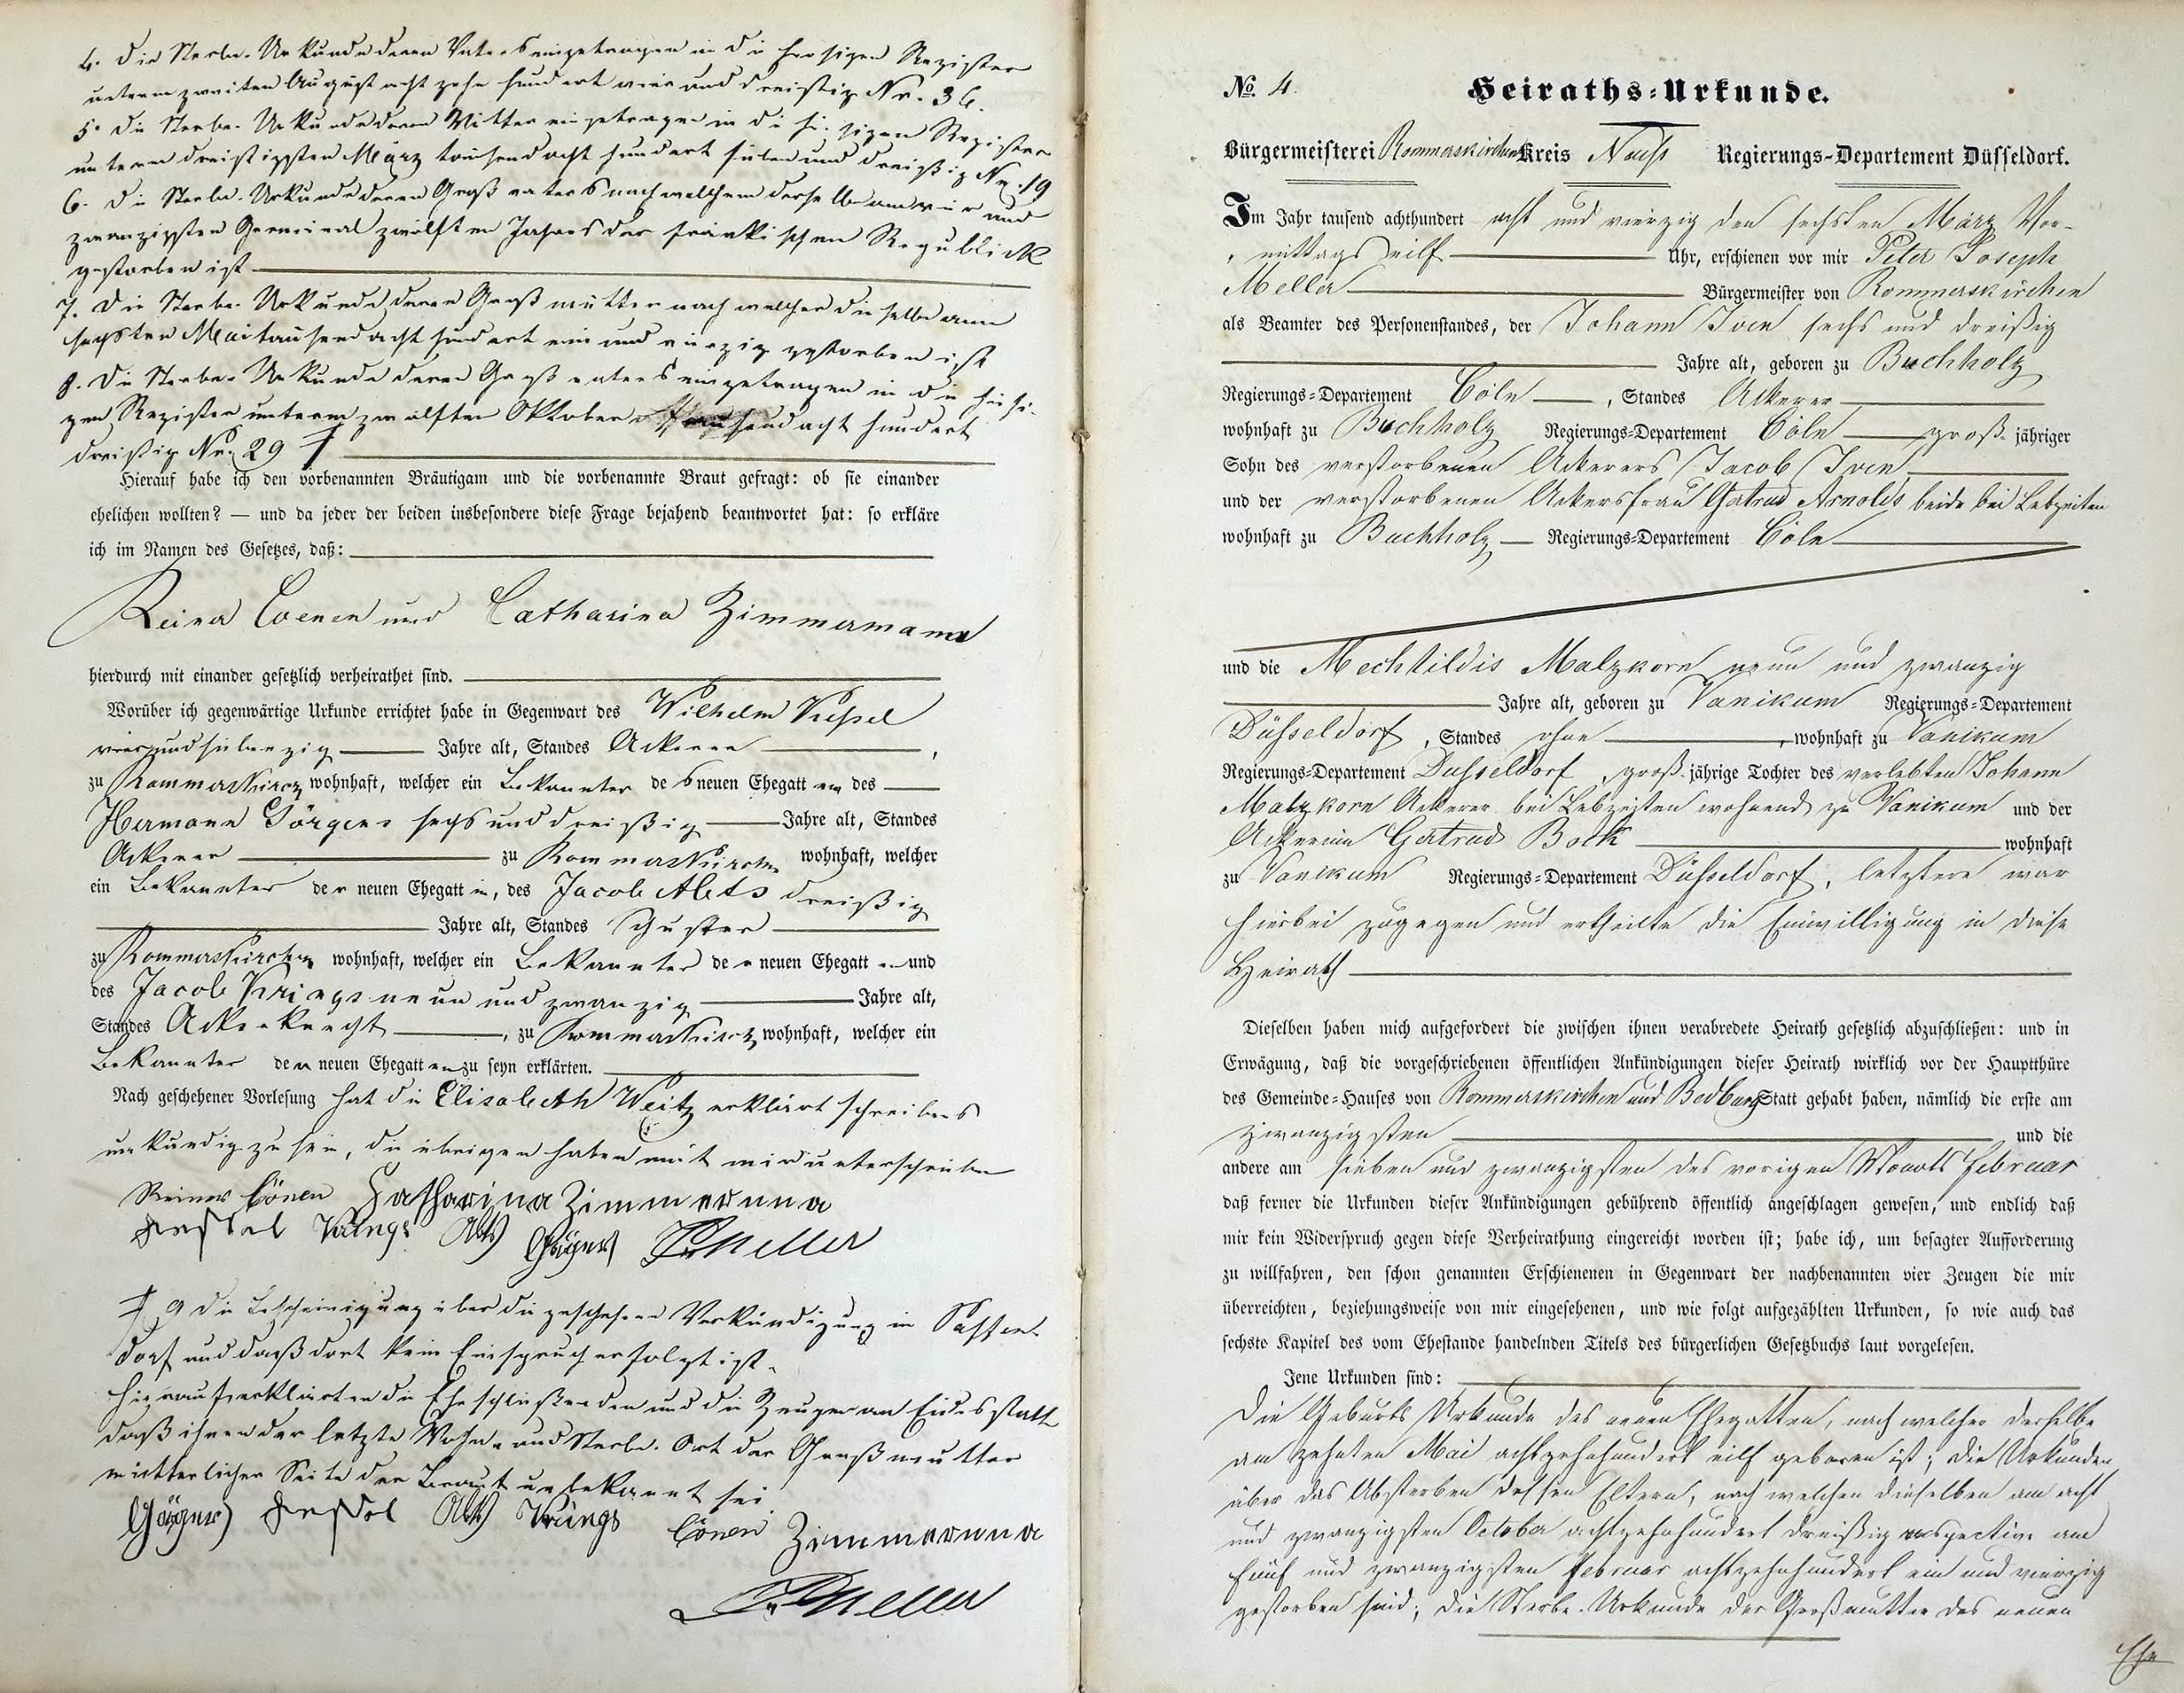 4. Die Sterbe-Urkunde deren Vaters eingetragen in die hiesigen Register
unterm zweiten August acht zehn hundert vier und dreißig Nr. 36.
5. Die Sterbe-Urkunde deren Mutter eingetragen in die hiesigen Register
unterm dreißigsten März tausend acht hundert sieben und dreißig Nr. 19
6. Die Sterbe-Urkunde deren Großvaters nach welchem derselbe am vier und
zwanzigsten Germinal zwölften Jahres der fränkischen Republick
gestorben ist
7. Die Sterbe-Urkunde deren Großmutter nach welcher dieselbe am
sechsten Mai tausend acht hundert ein und vierzig gestorben ist
8. Die Sterbe-Urkunde deren Großvaters eingetragen in die hiesi-
gen Register unterm zwölften Oktober tausend acht hundert
dreißig Nr. 29
Hierauf habe ich den vorbenannten Bräutigam und die vorbenannte Braut gefragt: ob sie einander
ehelichen wollten? — und da jeder der beiden insbesondere diese Frage bejahend beantwortet hat: so erkläre
ich im Namen des Gesetzes, daß:
Reiner Coenen und Catharina Zimmermann
hierdurch mit einander gesetzlich verheirathet sind.
Worüber ich gegenwärtige Urkunde errichtet habe in Gegenwart des Wilhelm
vier und siebenzig Jahre alt, Standes Ackerer,
zu Rommerskirch wohnhaft, welcher ein Bekannter des neuen Ehegatten des
Hermann Görgens sechs und dreißig Jahre alt, Standes
Ackerer zu Rommerskirchen wohnhaft, welcher
ein Bekannter der neuen Ehegattin, des Jacob Abts dreißig
Jahre alt, Standes Schuster
zu Rommerskirchen wohnhaft, welcher ein Bekannter der neuen Ehegatten und
des Jacob Krings neun und zwanzig Jahre alt,
Standes Ackerknecht, zu Rommerskirch wohnhaft, welcher ein
Bekannter der neuen Ehegatten zu seyn erklärten.
Nach geschehener Vorlesung hat die Elisabeth Weitz erklärt schreibens
unkundig zu sein, die übrigen haben mit mir unterschrieben
Reiner Cönen Catharina Zimmermann
Krings Abts Görgens PJ Meller
9 Die Bescheinigung über die geschehene Verkündigung in
dorf und daß dort kein Einspruch erfolgt ist.
Hierauf erklärten die Eheschließenden und die Zeugen an Eidesstatt
daß ihnen der letzte Wohn- und Sterbe-Ort der Großmutter
mütterlicher Seite der Braut unbekannt sei.
Görgens Abts Krings Cönen Zimmermann
PJ Meller
No. 4. Heiraths-Urkunde.
Bürgermeisterei Rommerskirchen Kreis Neuß Regierungs-Departement Düsseldorf.
Im Jahr tausend achthundert acht und vierzig den sechsten März Vor-
mittags eilf Uhr, erschienen vor mir Peter Joseph
Meller Bürgermeister von Rommerskirchen
als Beamter des Personenstandes, der Johann Iven sechs und dreißig
Jahre alt, geboren zu Buchholz
Regierungs-Departement Cöln, Standes Ackerer
wohnhaft zu Buchholz Regierungs-Departement Cöln groß jähriger
Sohn des verstorbenen Ackerers Jacob Iven
und der verstorbenen Ackersfrau Gertrud Arnolds beide bei Lebzeiten
wohnhaft zu Buchholz Regierungs-Departement Cöln
und die Mechtildis Malzkorn neun und zwanzig
Jahre alt, geboren zu Vanikum Regierungs-Departement
Düsseldorf, Standes ohne, wohnhaft zu Vanikum
Regierungs-Departement Dusseldorf, groß jährige Tochter des verlebten Johann
Malzkorn Ackerer bei Lebzeiten wohnend zu Vanikum und der
Ackerin Gertrud Bock wohnhaft
zu Vanikum Regierungs-Departement Düsseldorf, letztere war
hierbei zugegen und ertheilte die Einwilligung in diese
Heirath
Dieselben haben mich aufgefordert die zwischen ihnen verabredete Heirath gesetzlich abzuschließen: und in
Erwägung, daß die vorgeschriebenen öffentlichen Ankündigungen dieser Heirath wirklich vor der Hauptthüre
des Gemeinde-Hauses von Rommerskirchen und Bedburg Statt gehabt haben, nämlich die erste am
zwanzigsten und die
andere am sieben und zwanzigsten des vorigen Monats Februar
daß ferner die Urkunden dieser Ankündigungen gebührend öffentlich angeschlagen gewesen, und endlich daß
mir kein Widerspruch gegen diese Verheirathung eingereicht worden ist; habe ich, um besagter Aufforderung
zu willfahren, den schon genannten Erschienenen in Gegenwart der nachbenannten vier Zeugen die mir
überreichten, beziehungsweise von mir eingesehenen, und wie folgt aufgezählten Urkunden, so wie auch das
sechste Kapitel des vom Ehestande handelnden Titels des bürgerlichen Gesetzbuchs laut vorgelesen.
Jene Urkunden sind:
Die Geburts Urkunde des neuen Ehegatten, nach welcher derselbe
am zehnten Mai achtzehnhundert eilf geboren ist; die Urkunden
über das Absterben dessen Eltern, nach welchen dieselben am acht
und zwanzigsten October achtzehnhundert dreißig respective am
fünf und zwanzigsten Februar achtzehnhundert ein und vierzig
gestorben sind; die Sterbe-Urkunde der Großmutter des neuen
Ehe